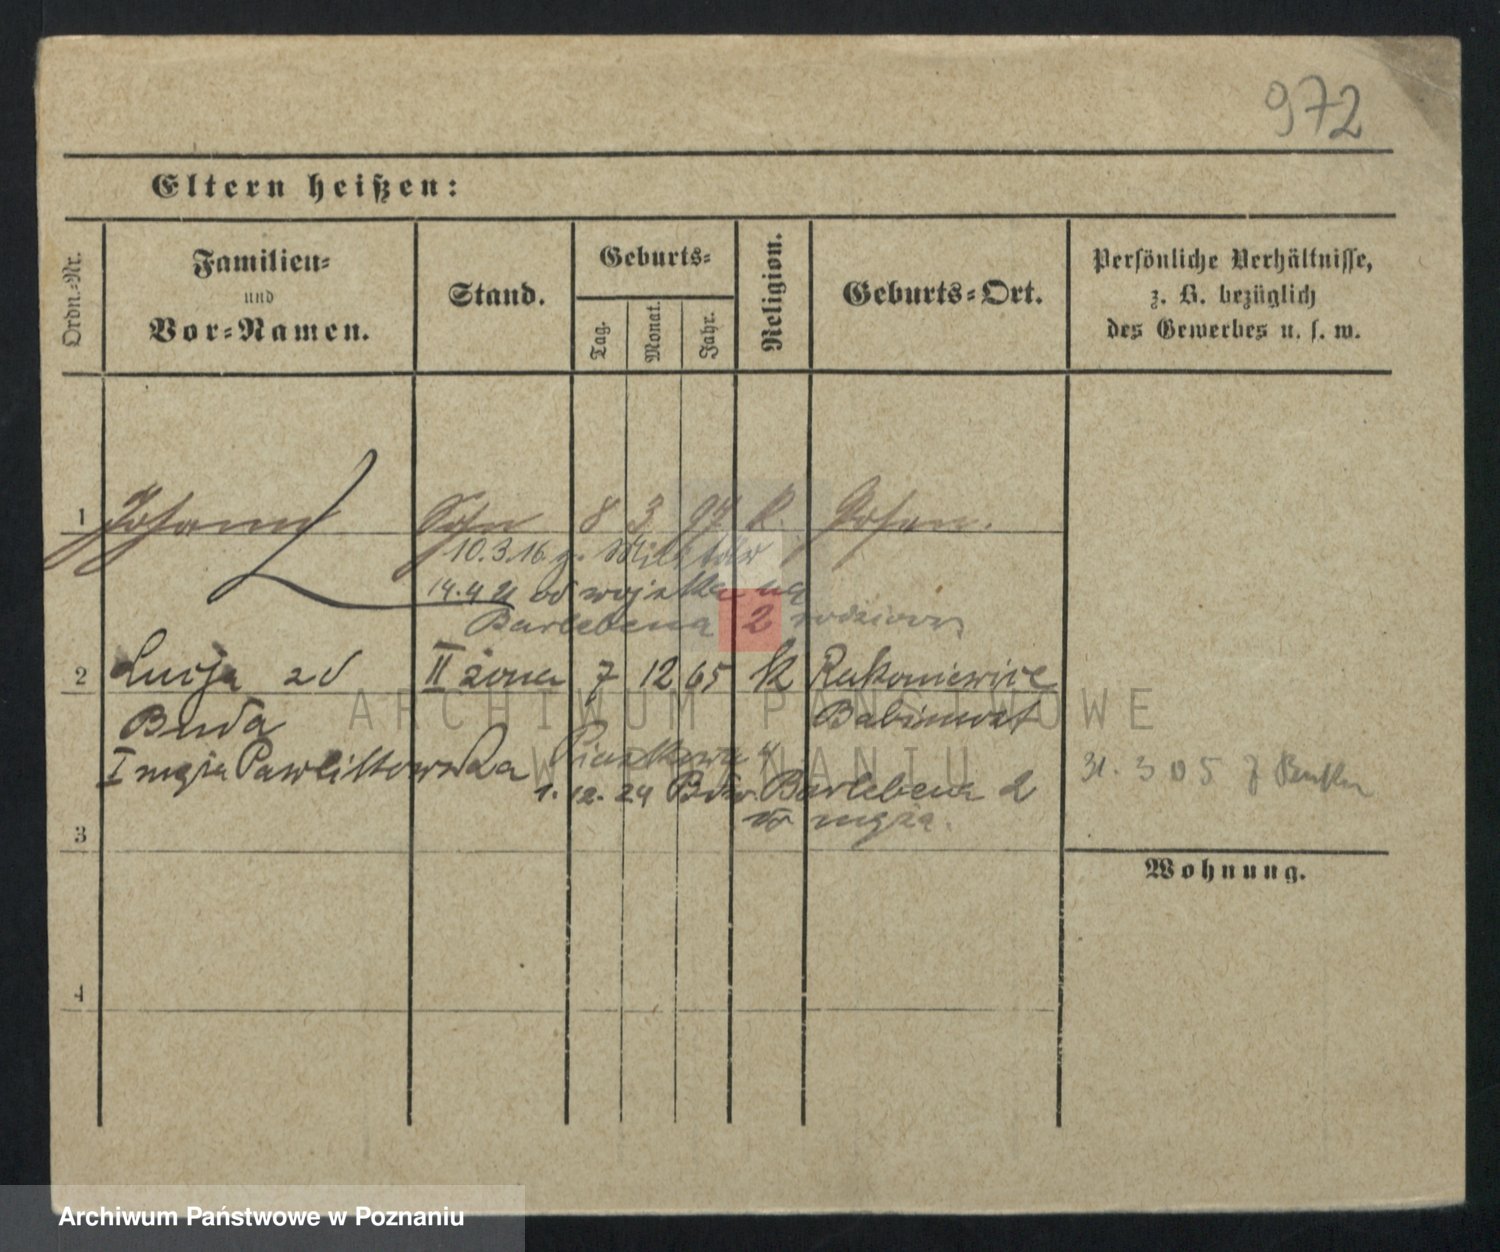 972
Eltern heißen:
Ordn.-Nr.
Familien-
und
Vor-Namen.
Stand.
Geburts-
Tag.
Monat.
Jahr.
Religion.
Geburts-Ort.
Persönliche Verhältnisse,
z. B. bezüglich
des Gewerbes u. s. w.
1 Johann Sohn 8 3 97 k. Posen.
10.3.16 z. Militär
14.4 21 od wojska na
Barlebena 2 rodzicow
2 Lucja zd II żona 7 12 65 k Rakoniewice
Buda Babimost
I męża Pawlikowska
1.12.24 Bdw. Barlebena 2
do męża.
31. 3 05
3
Wohnung.
4
ARCHIWUM PAŃSTWOWE
W POZNANIU
Archiwum Państwowe w Poznaniu